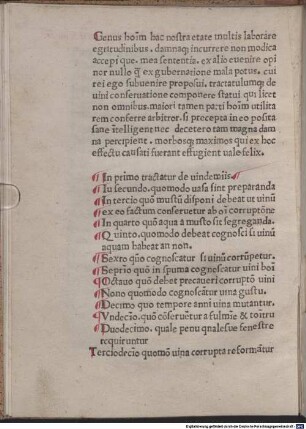 Genus hoĩm hac nostra etate multis laborare
egritudinibus. damnaq; incurrere non modica
accepi que. mea sententia. ex alio euenire opi
nor nullo q̃ ex gubernatione mala potus. cui
rei ego subuenire proposui. tractatulumq; de
uini conseruatione componere statui qui licet
non omnibus. maiori tamen parti hoĩm utilita
tem conferre arbitror. si precepta in eo posita
sane ĩtelligent nec decetero tam magna dam
na percipient. morbosq; maximos qui ex hoc
effectu causati fuerant effugient vale felix.
¶ In primo tractatur de uindemiis
¶ In secundo. quomodo uasa sint preparanda
¶ In tercio quo mustũ disponi debeat ut uinũ
ex eo factum conseruetur ab oĩ corruptõne
¶ In quarto quõ aqua a musto sit segreganda.
¶ Quinto. quomodo debeat cognosci si uinũ
aquam habeat an non.
¶ Sexto quõ cognoscatur si uinũ corrũpetur.
¶ Septĩo quõ in spuma cognoscatur uini boĩ
¶ Octauo quõ debet precaueri corruptõ uini
¶ Nono quomodo cognoscãtur uina gustu.
¶ Decimo quo tempore anni uina mutantur.
¶ Vndecĩo. quõ cõseruẽtur a fulmĩe & tonĩtru
¶ Duodecimo. quale penu qualesue fenestre
requiruntur
Terciodecĩo quomõ uina corrupta reformãtur